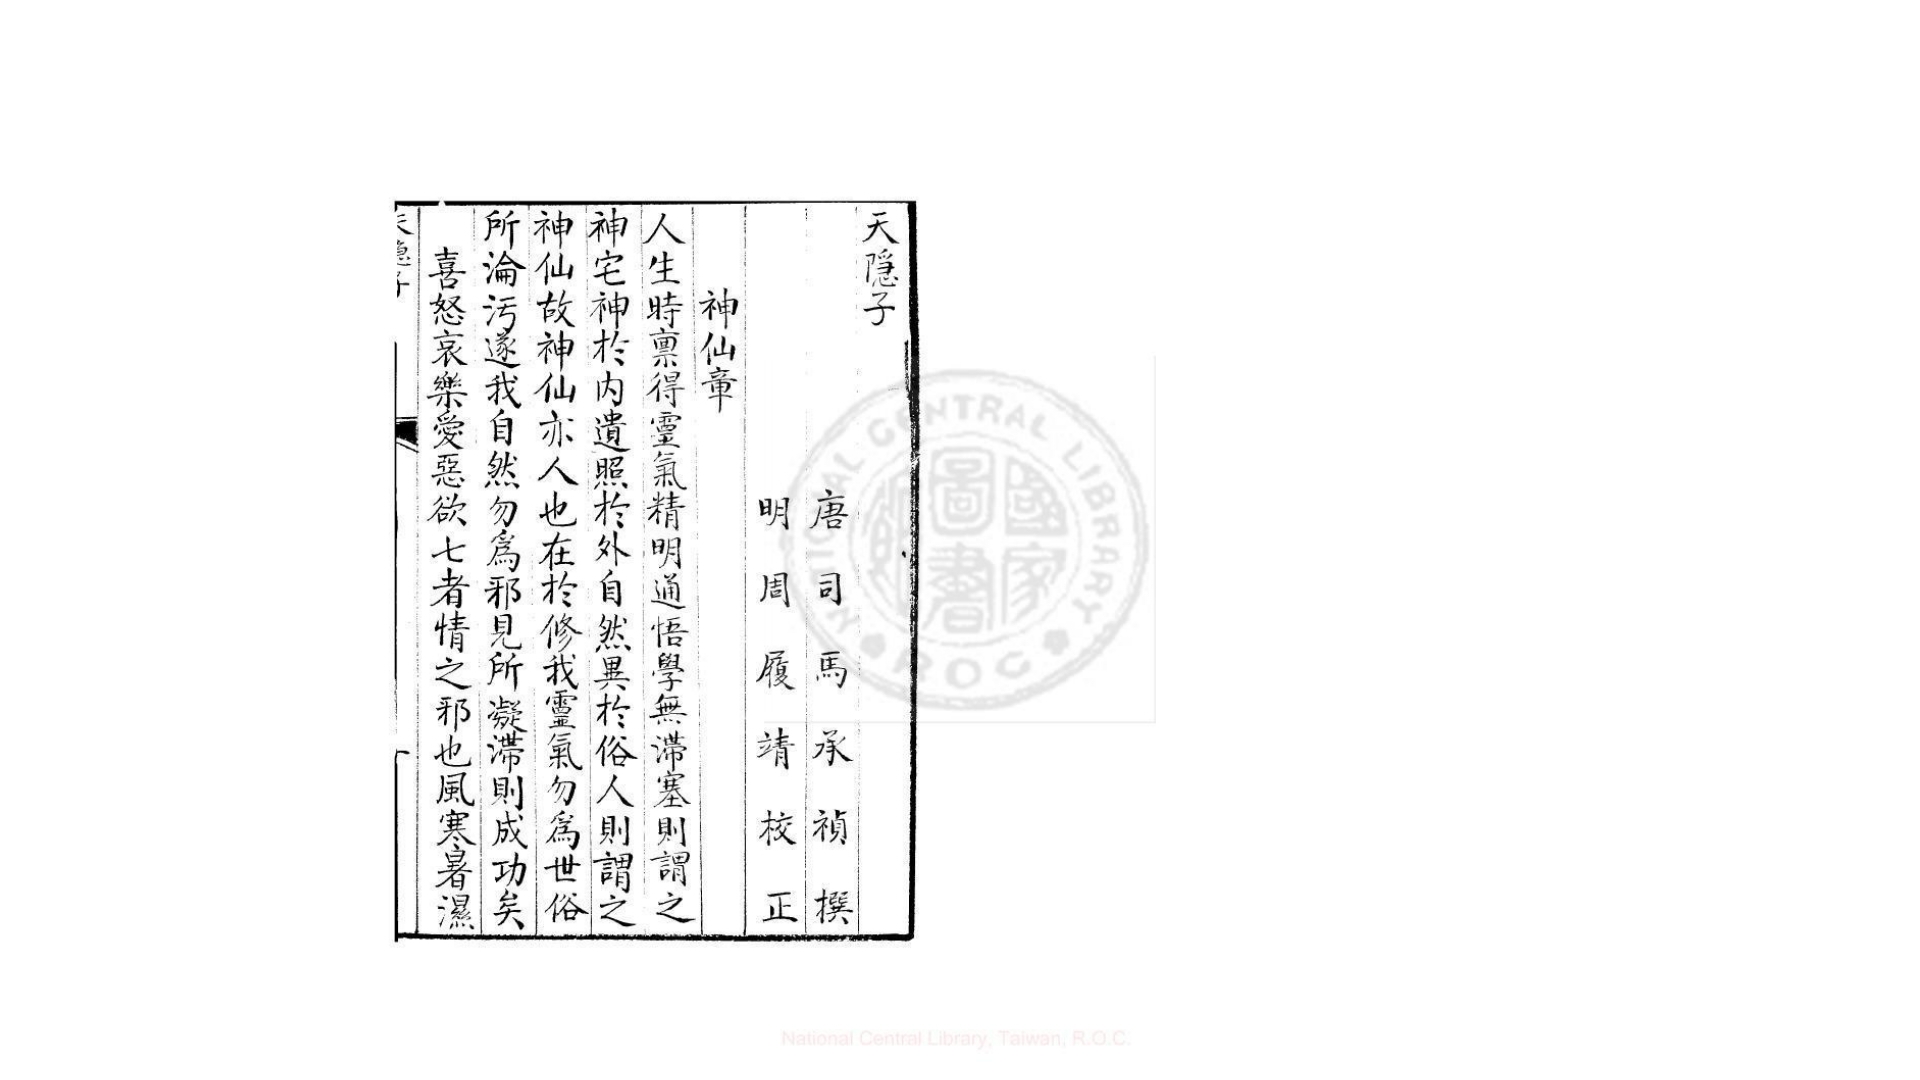 天隱子
唐司馬承禎撰
明周履靖校正
神仙章
人生時禀得靈氣精明通悟學無滯塞則謂之
神宅神於内遺照於外自然異於俗人則謂之
神仙故神仙亦人也在於修我靈氣勿爲世俗
所淪污遂我自然勿爲邪見所凝滯則成功矣
喜怒哀樂愛惡欲七者情之邪也風寒暑濕
天隱子
NATIONAL CENTRAL LIBRARY
國家圖書館
ROC
National Central Library, Taiwan, R.O.C.